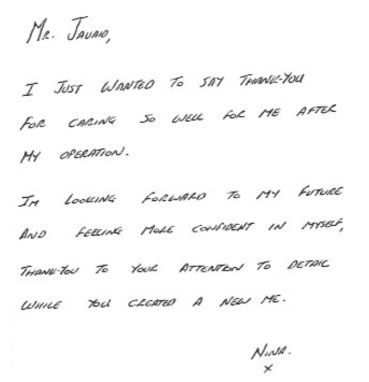 Mr. Javaid,
I JUST WANTED TO SAY THANK-YOU
FOR CARING SO WELL FOR ME AFTER
MY OPERATION.
IM LOOKING FORWARD TO MY FUTURE
AND FEELING MORE CONFIDENT IN MYSELF,
THANK-YOU TO YOUR ATTENTION TO DETAIL
WHILE YOU CREATED A NEW ME.
NINA.
X